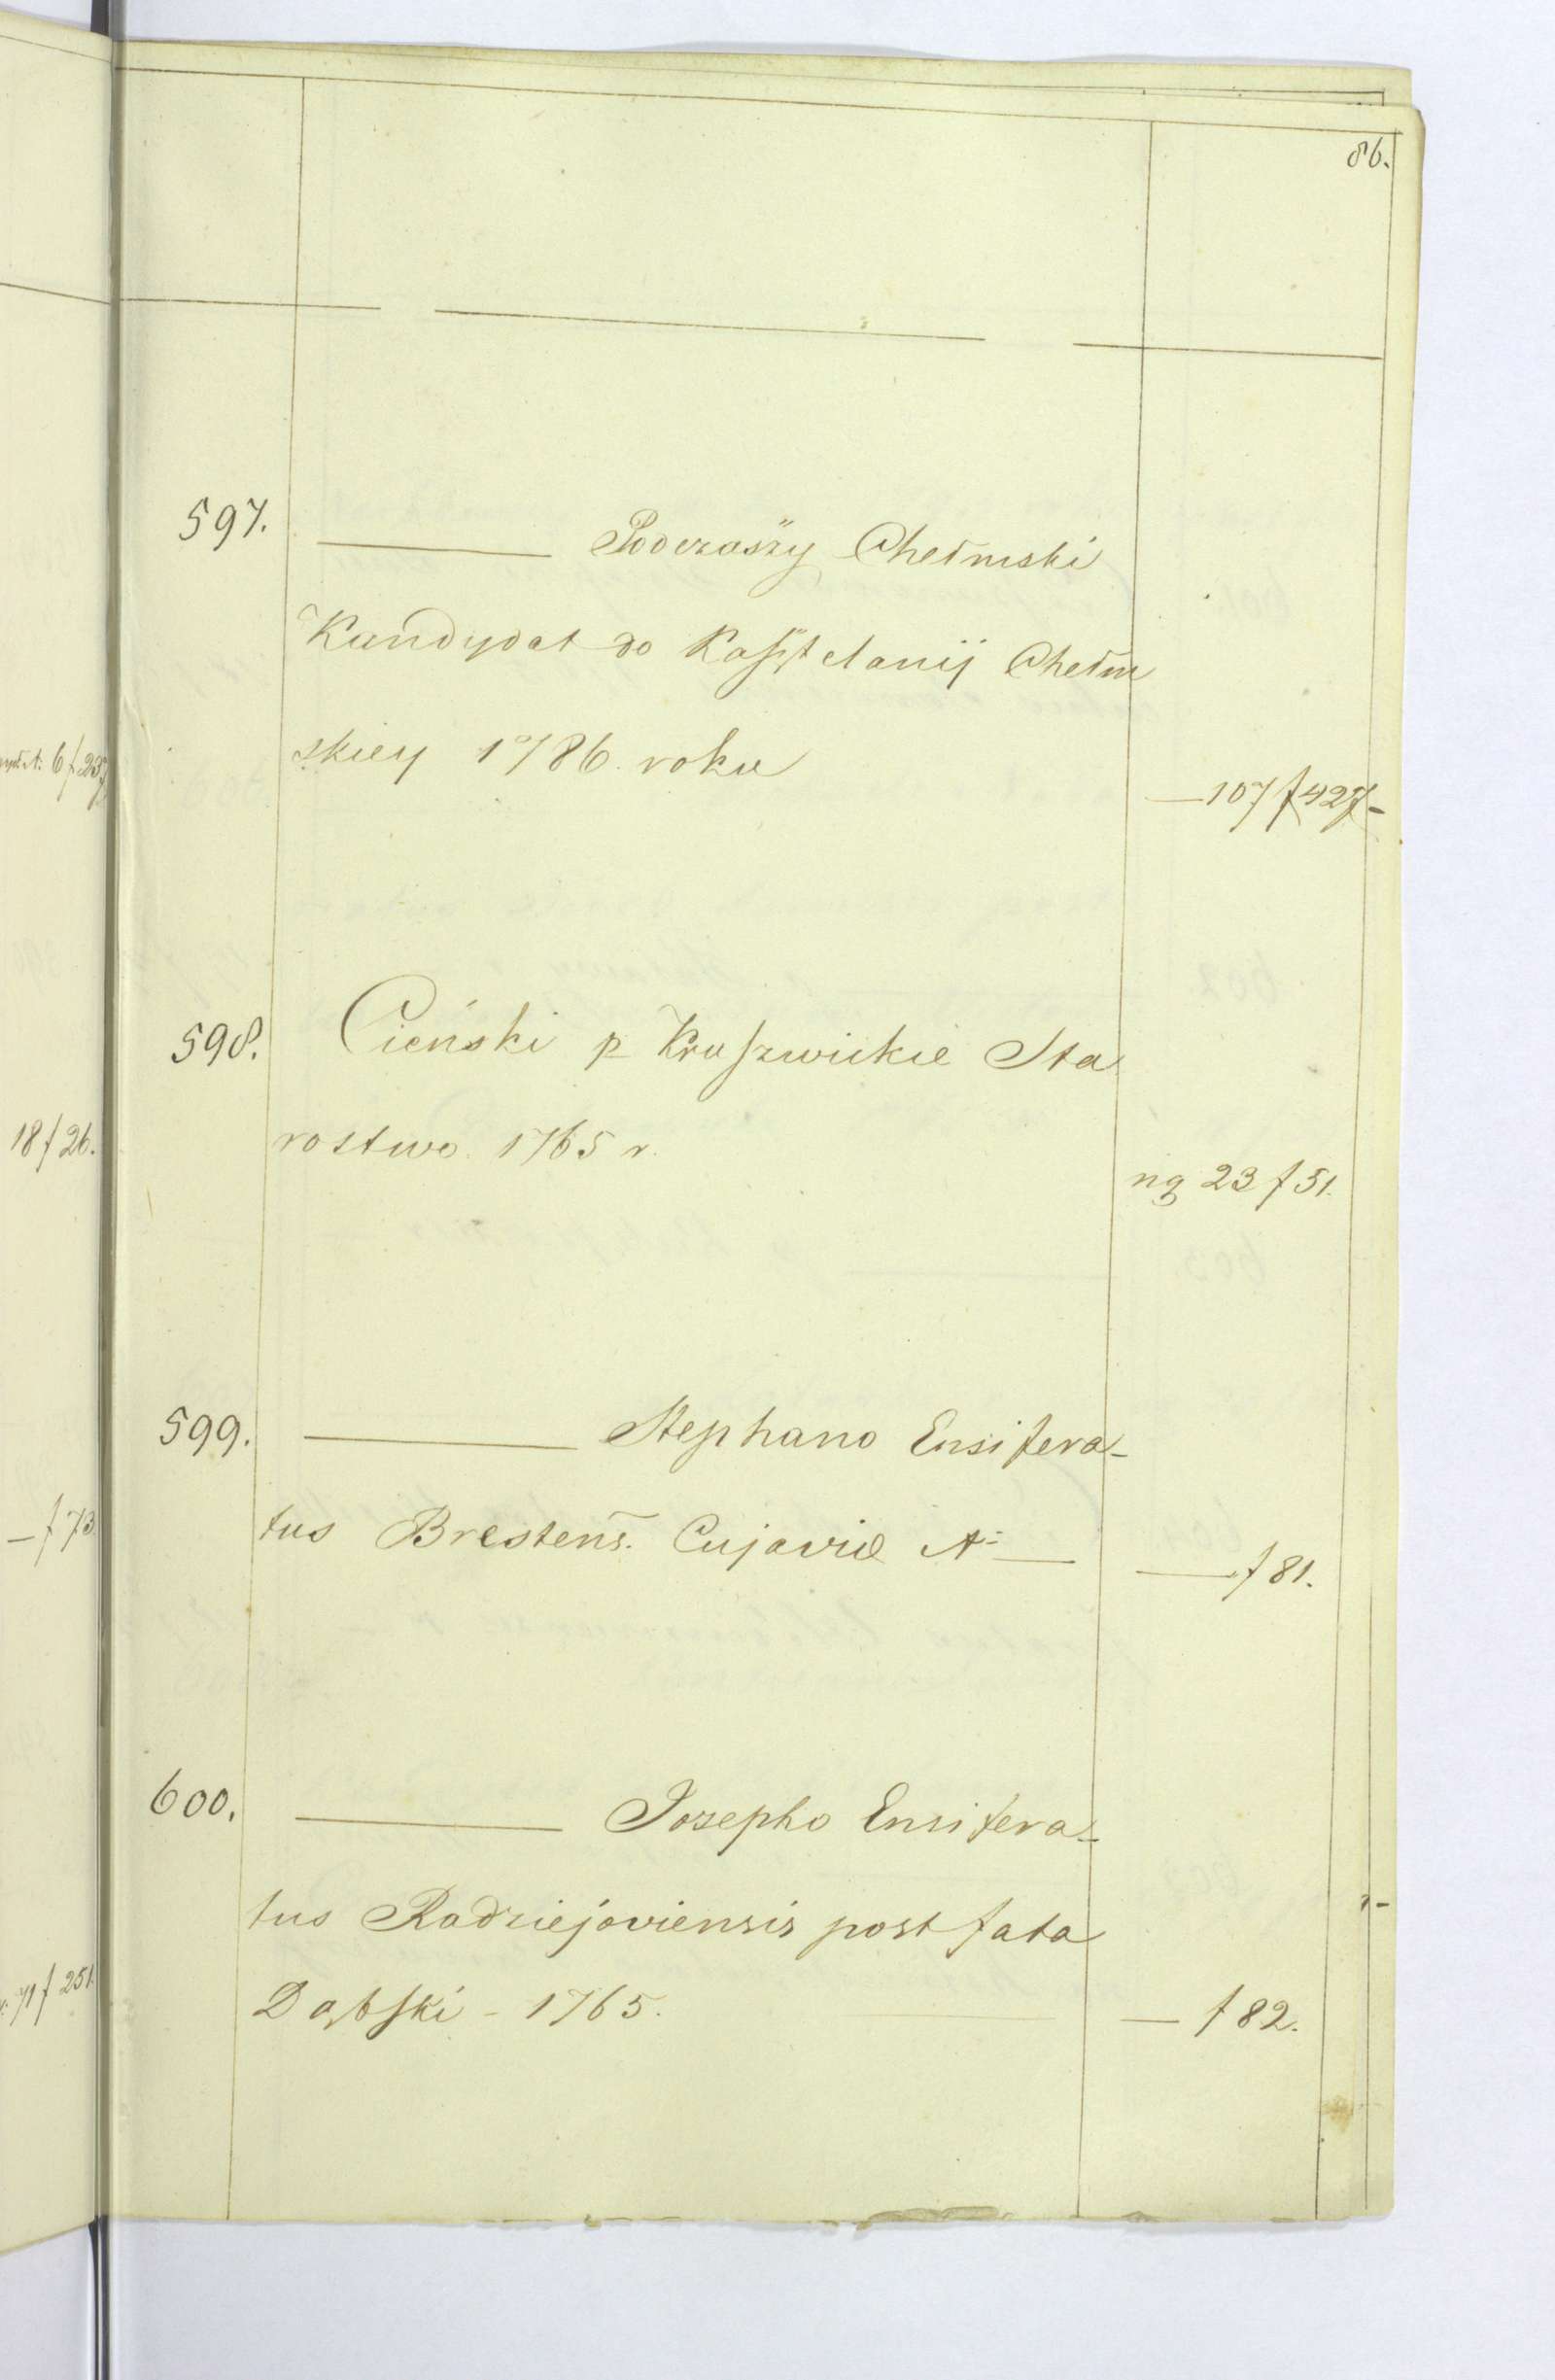 86.
597. ——— Podczaszy Chełmski
Kandydat do Kasztelanij Chełm
skiey 1786 roku — 107 f 427-
598. Cieński p Kruszwickie Sta
rostwo 1765 r. ng 23 f 51.
599. ——— Stephano Ensifera-
tus Brestens. Cujaviæ A: — — f 81.
600. ——— Josepho Ensifera-
tus Radziejoviensis post fata
Dąbski - 1765. — f 82.
6 f 237
18 f 26.
— f 73
71 f 251.